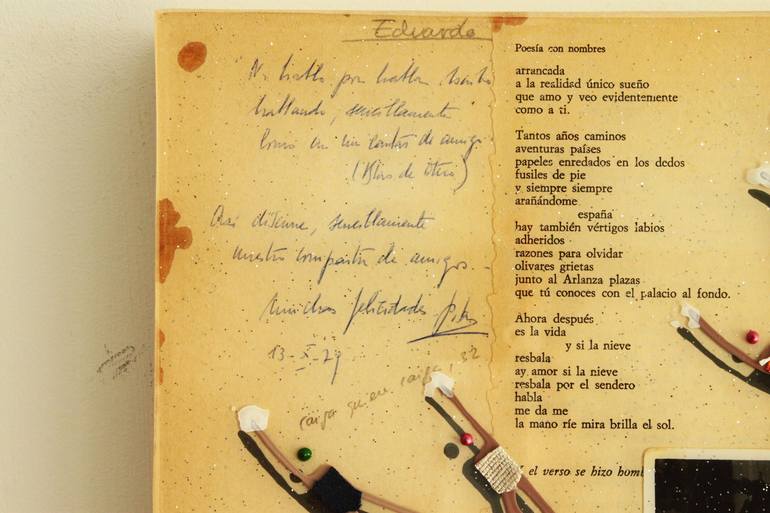 Eduardo
No hablo por hablar
hablando, sencillamente
como en un cantar de amigo
(Blas de Otero)
sencillamente
de amigos.
Muchas felicidades
13-X-79
caiga quien caiga, 32
Poesía con nombres
arrancada
a la realidad único sueño
que amo y veo evidentemente
como a ti.
Tantos años caminos
aventuras países
papeles enredados en los dedos
fusiles de pie
y siempre siempre
arañándome
españa
hay también vértigos labios
adheridos
razones para olvidar
olivares grietas
junto al Arlanza plazas
que tú conoces con el palacio al fondo.
Ahora después
es la vida
y si la nieve
resbala
ay amor si la nieve
resbala por el sendero
habla
me da me
la mano ríe mira brilla el sol.
el verso se hizo